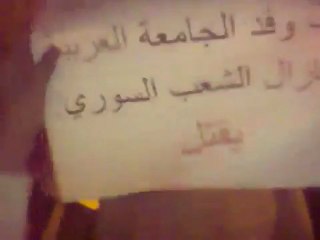 وفد الجامعة العربية
مازال الشعب السوري
يقتل